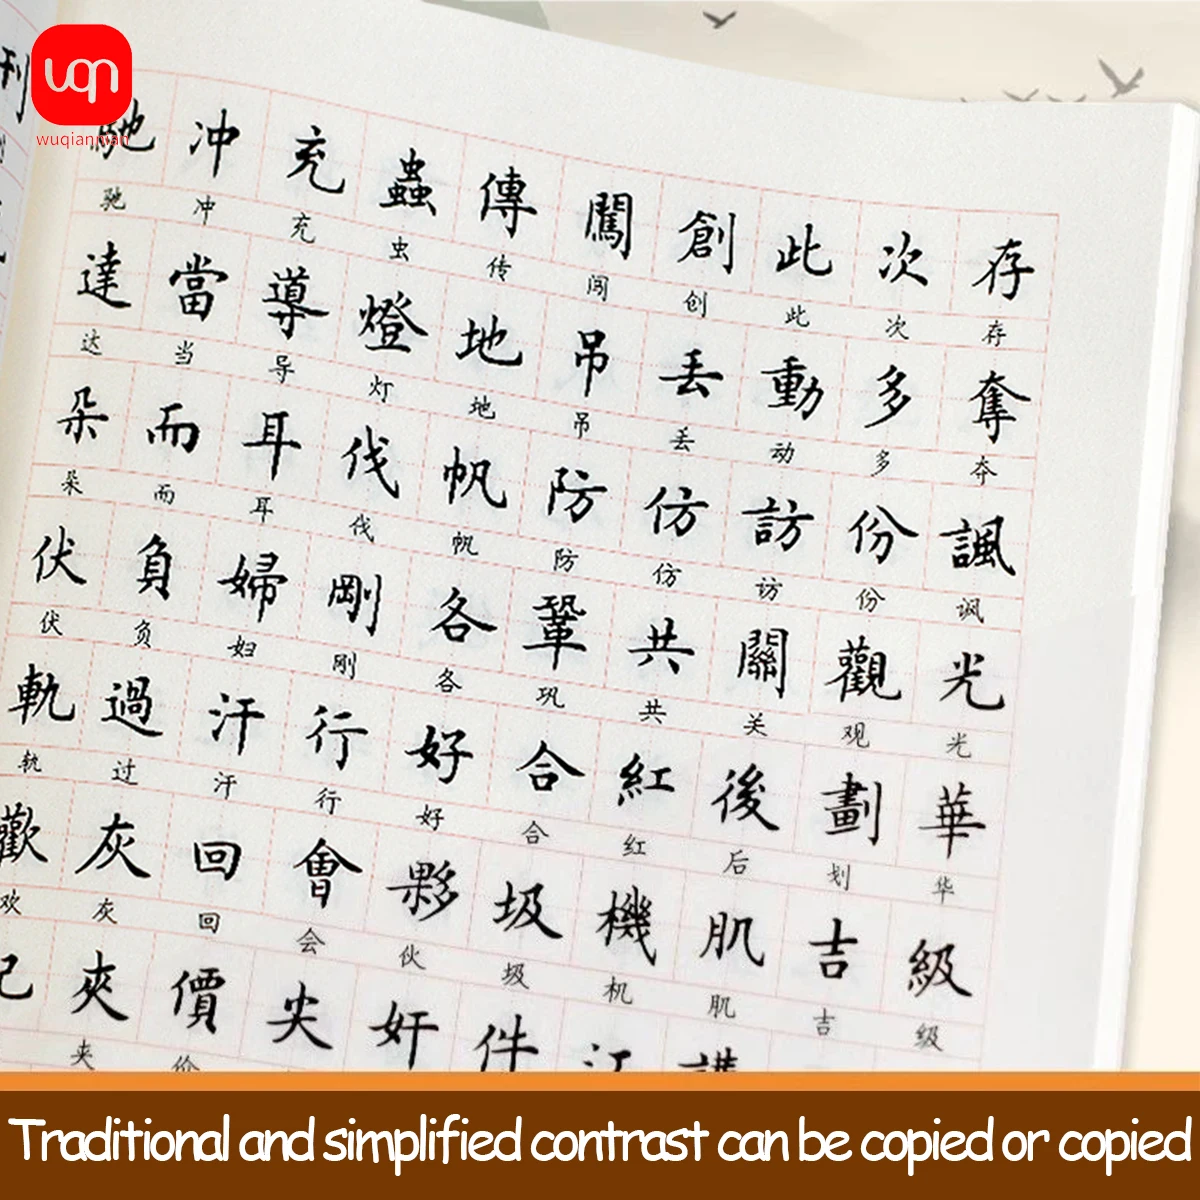 uqn
wuqiannian
刊
馳 冲 充 蟲 傳 闖 創 此 次 存
驰 冲 充 虫 传 闯 创 此 次 存
達 當 導 燈 地 吊 丢 動 多 奪
达 当 导 灯 地 吊 丢 动 多 夺
朵 而 耳 伐 帆 防 仿 訪 份 諷
朵 而 耳 伐 帆 防 仿 访 份 讽
伏 負 婦 剛 各 鞏 共 關 觀 光
伏 负 妇 刚 各 巩 共 关 观 光
軌 過 汗 行 好 合 紅 後 劃 華
轨 过 汗 行 好 合 红 后 划 华
歡 灰 回 會 夥 圾 機 肌 吉 級
欢 灰 回 会 伙 圾 机 肌 吉 级
夾 價 尖 奸 件
夹 价
Traditional and simplified contrast can be copied or copied